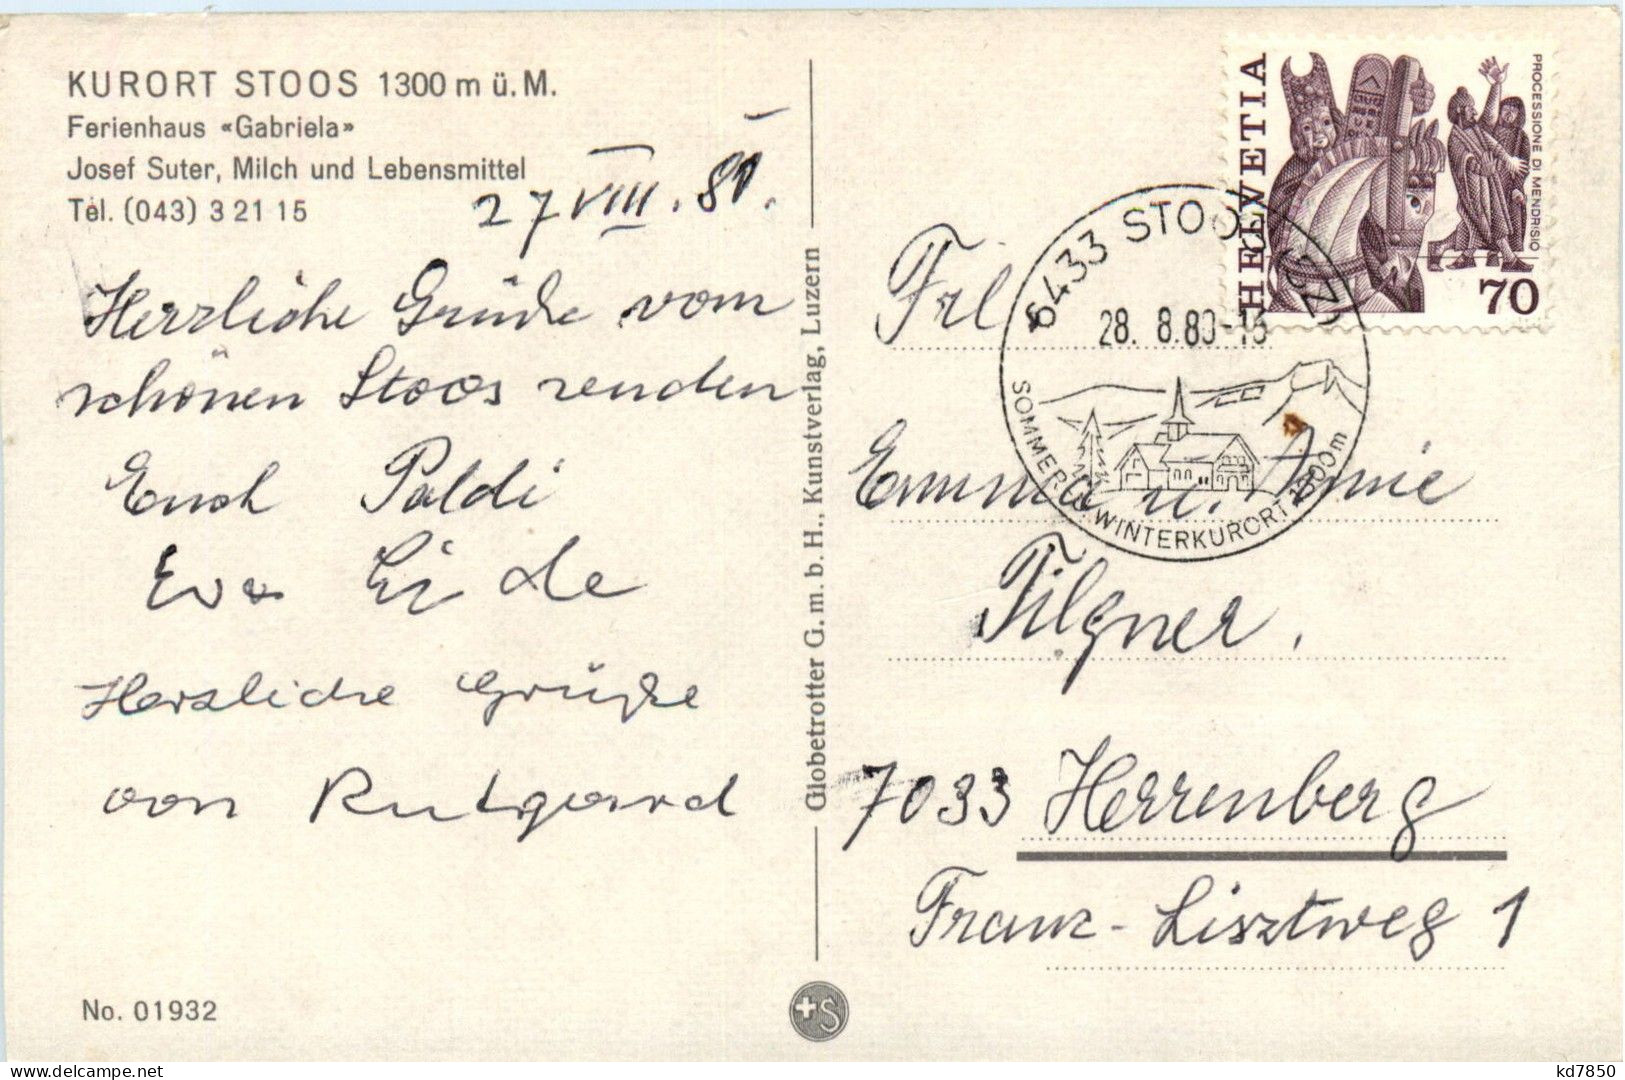 KURORT STOOS 1300 m ü. M.
Ferienhaus «Gabriela»
Josef Suter, Milch und Lebensmittel
Tel. (043) 3 21 15
27 VIII. 80.
Herzliche Grüße vom
schönen Stoos senden
Euch Poldi
Eva
Herzliche Grüße
von Rutgard
No. 01932
Globetrotter G. m. b. H., Kunstverlag, Luzern
+S
HELVETIA
PROCESSIONE DI MENDRISIO
70
6433 STOOS SZ
28. 8.80-18
SOMMER- U. WINTERKURORT 1300m
Frl.
Emma u. Annie
Pilgner.
7033 Herrenberg
Franz-Lisztweg 1
delcampe.net
kd7850